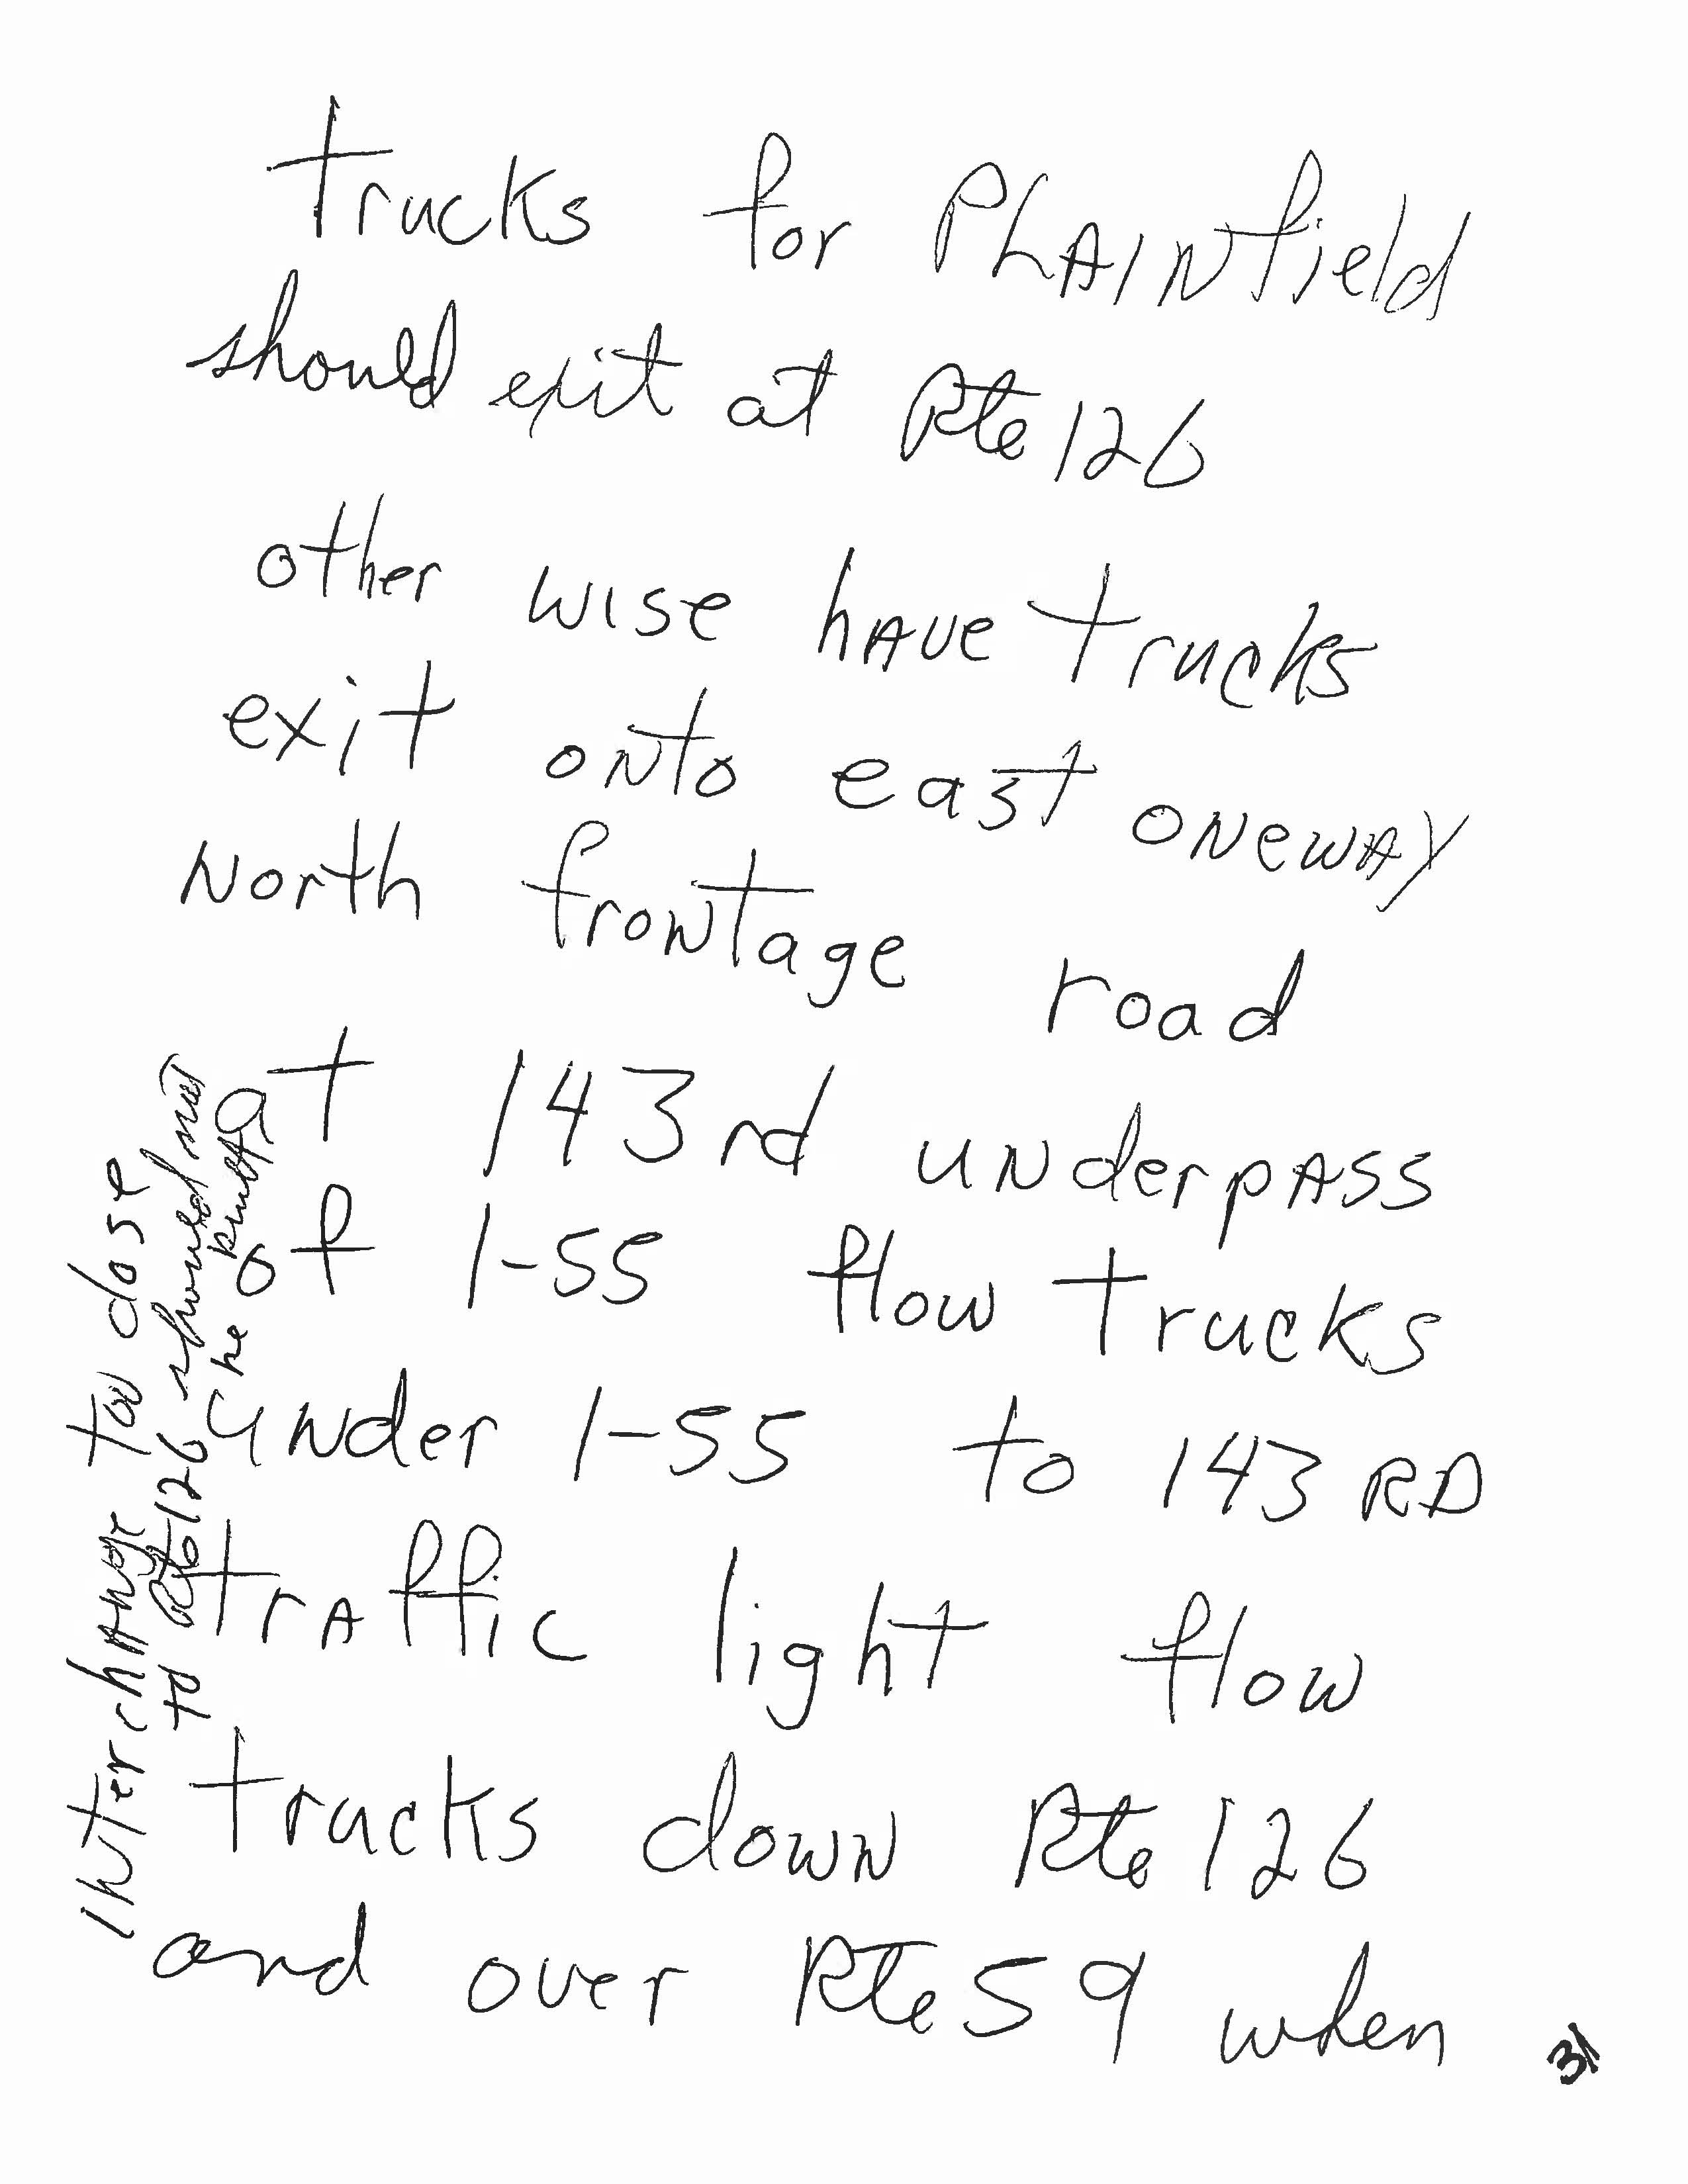 trucks for PLAINfield
should exit at Rte 126
other wise hAve trucks
exit onto east oNewAy
North froNtage road
at 143rd uNderpAss
of I-55 flow trucks
uNder I-55 to 143 RD
trAffic light flow
trucks down Rte 126
and over Rte 59 when
INterchANge too close
to Rte 126 should not
he
31